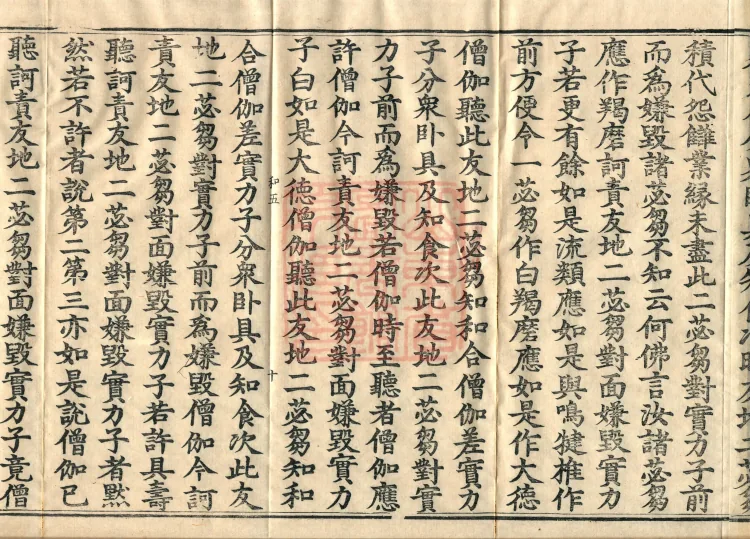 積代怨讎業緣未盡此二苾芻對實力子前
而為嫌毀諸苾芻不知云何佛言汝諸苾芻
應作羯磨訶責友地二苾芻對面嫌毀實力
子若更有餘如是流類應如是與鳴揵椎作
前方便令一苾芻作白羯磨應如是作大德
僧伽聽此友地二苾芻知和合僧伽差實力
子分衆卧具及知食次此友地二苾芻對實
力子前而為嫌毀若僧伽時至聽者僧伽應
許僧伽今訶責友地二苾芻對面嫌毀實力
子白如是大德僧伽聽此友地二苾芻知和
和五
十
合僧伽差實力子分衆卧具及知食次此友
地二苾芻對實力子前而為嫌毀僧伽今訶
責友地二苾芻對面嫌毀實力子若許具壽
聽訶責友地二苾芻對面嫌毀實力子者默
然若不許者說第二第三亦如是說僧伽已
聽訶責友地二苾芻對面嫌毀實力子竟僧